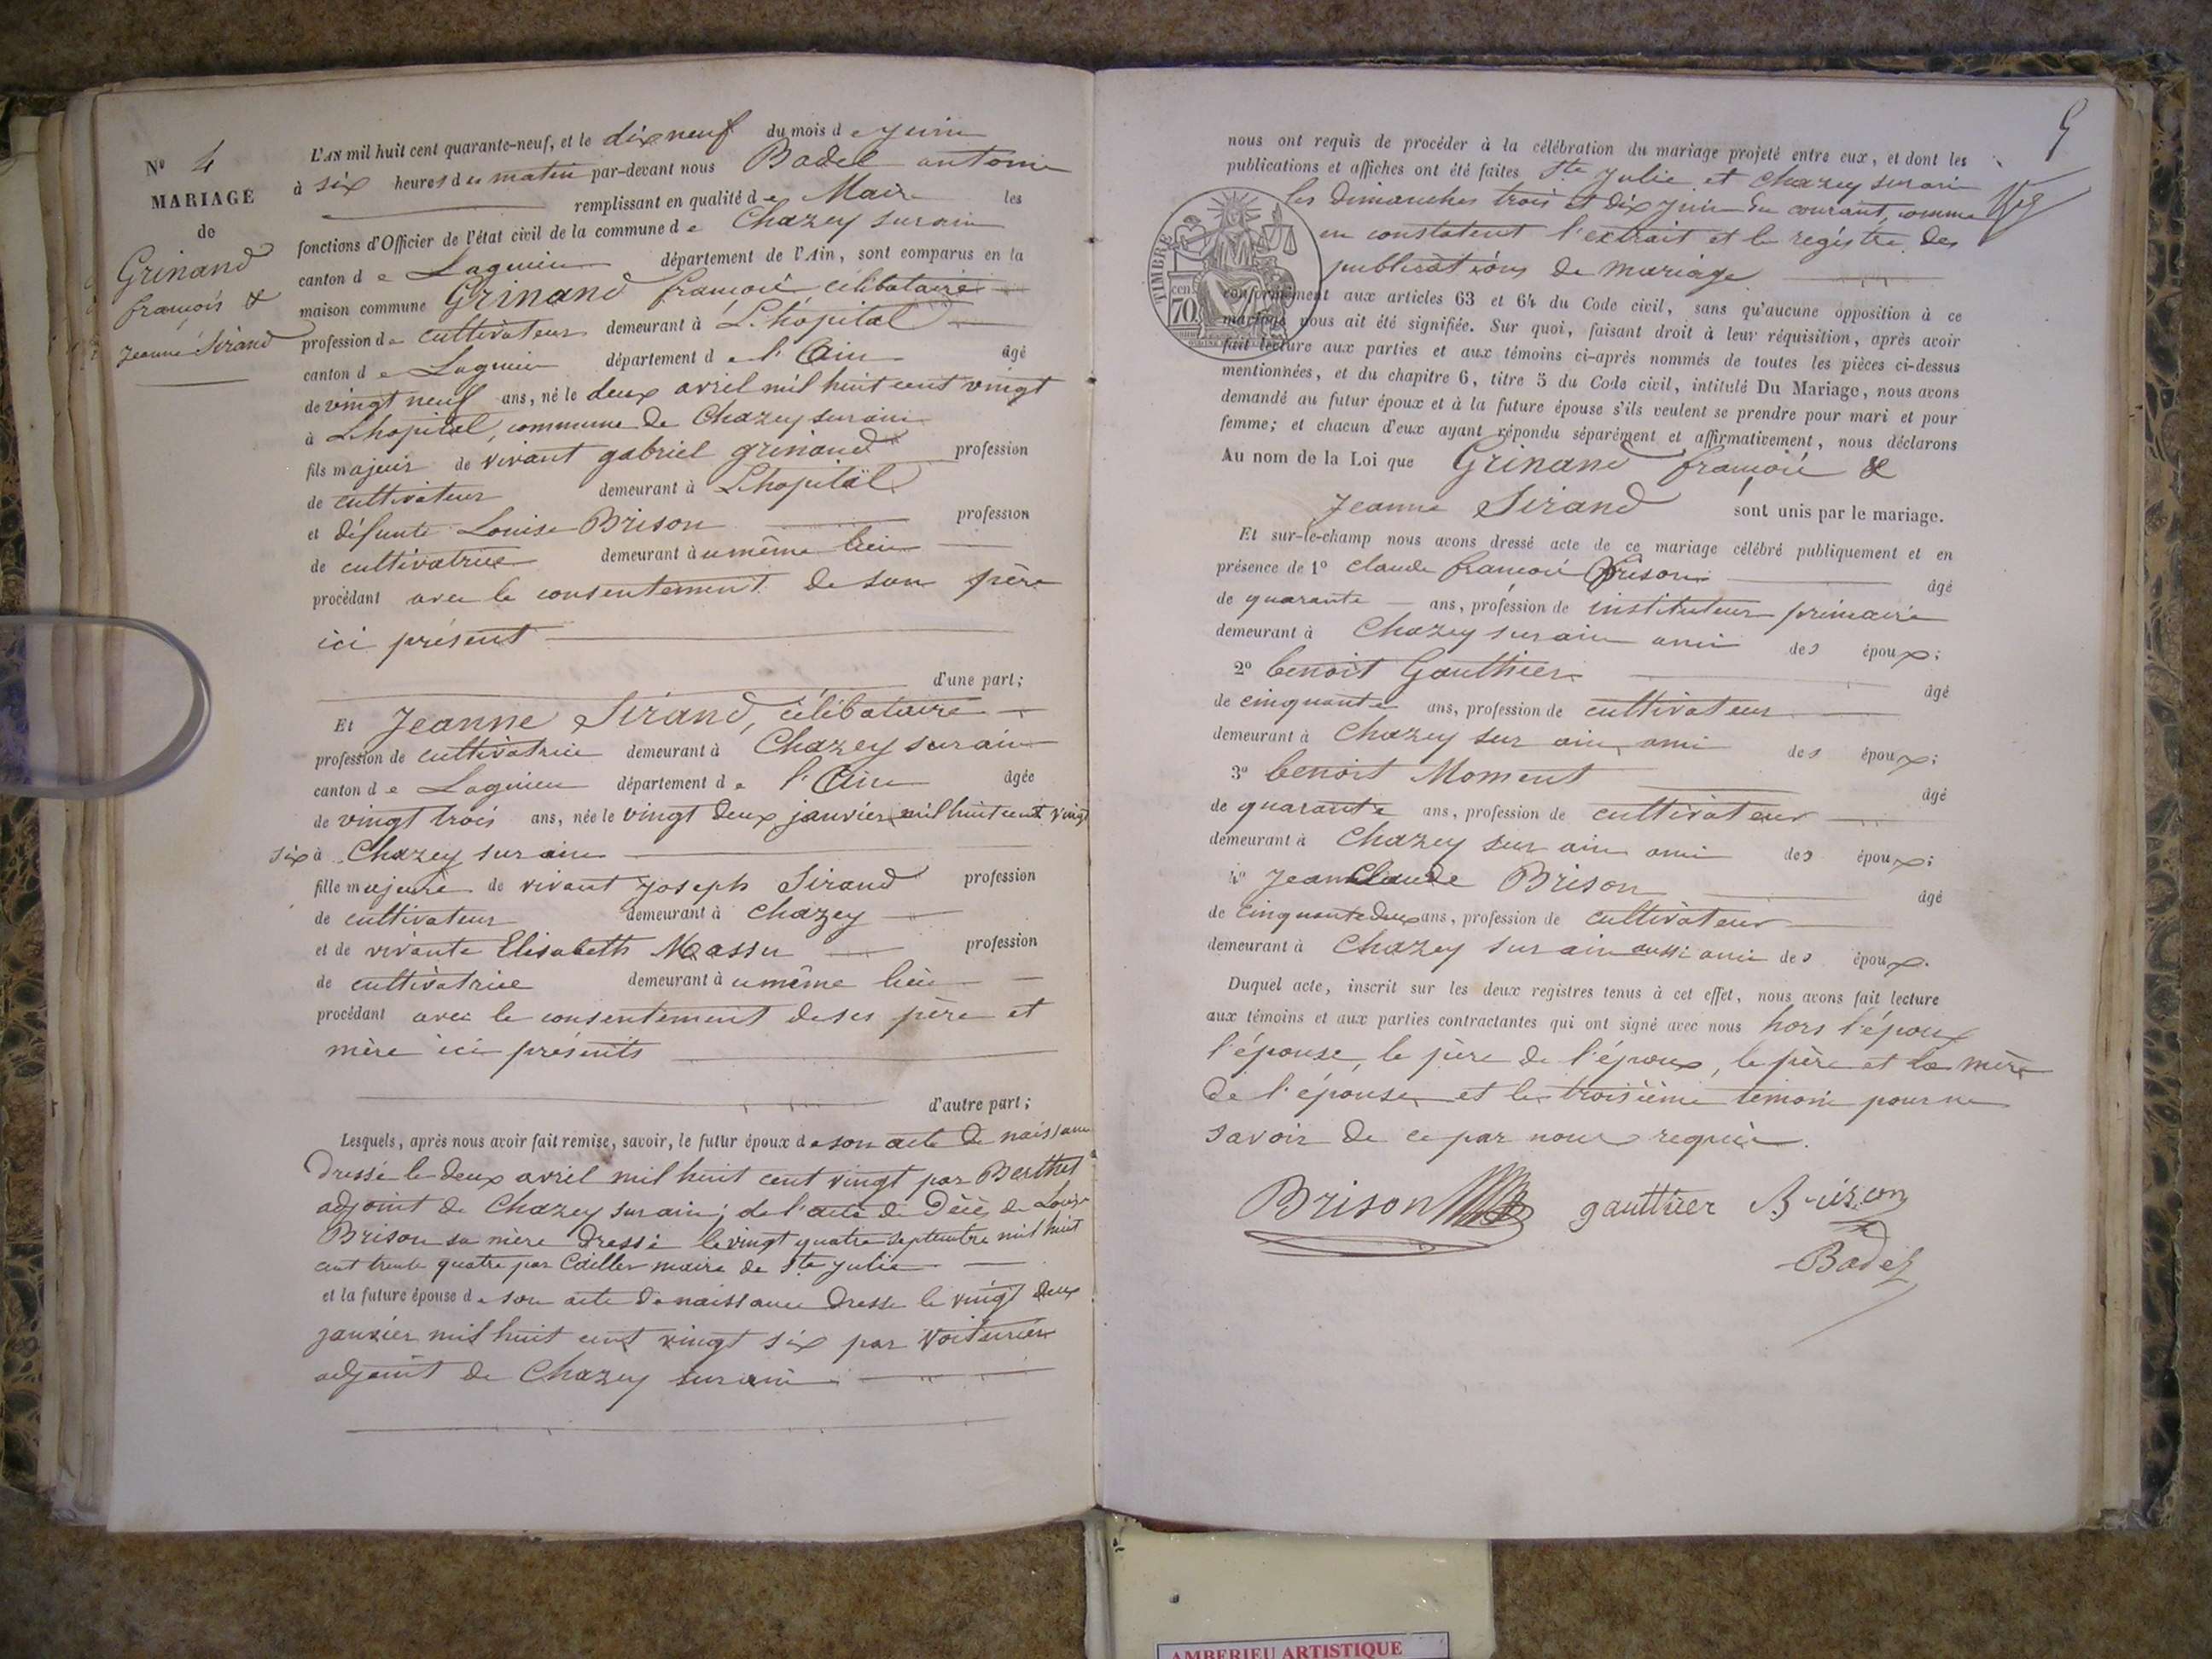 N° 4
MARIAGE
de
Grinand
françois &
Jeanne Sirand
L'AN mil huit cent quarante-neuf, et le dix neuf du mois de juin
à six heures du matin par-devant nous Badel antoine
remplissant en qualité de Maire les
fonctions d'Officier de l'état civil de la commune de Chazey sur ain
canton de Lagnieu département de l'Ain, sont comparus en la
maison commune Grinand françois célibataire
profession de cultivateur demeurant à L'hôpital
canton de Lagnieu département de l'Ain âgé
de vingt neuf ans, né le deux avril mil huit cent vingt
à L'hopital, commune de Chazey sur ain
fils majeur de vivant gabriel grinand profession
de cultivateur demeurant à L'hopital
et défunte Louise Brison profession
de cultivatrice demeurant à u même lieu
procédant avec le consentement de son père
ici présent
d'une part;
Et Jeanne Sirand, célibataire
profession de cultivatrice demeurant à Chazey sur ain
canton de Lagnieu département de l'Ain âgée
de vingt trois ans, née le vingt deux janvier mil huit cent vingt
six à Chazey sur ain
fille majeure de vivant Joseph Sirand profession
de cultivateur demeurant à Chazey
et de vivante Elisabeth Massu profession
de cultivatrice demeurant à u même lieu
procédant avec le consentement de ses père et
mère ici présents
d'autre part;
Lesquels, après nous avoir fait remise, savoir, le futur époux de son acte de naissance
dressé le deux avril mil huit cent vingt par Berthet
adjoint de Chazey sur ain; de l'acte de décès de Louise
Brison sa mère dressé le vingt quatre septembre mil huit
cent trente quatre par maire de Ste Julie
et la future épouse de son acte de naissance dressé le vingt deux
janvier mil huit cent vingt six par Voiturier
adjoint de Chazey sur ain
5
nous ont requis de procéder à la célébration du mariage projeté entre eux, et dont les
publications et affiches ont été faites Ste Julie et Chazey sur ain
les dimanches trois et dix juin du courant, comme
en constatent l'extrait et le registre des
publications de mariage
TIMBRE
cen
70
conformément aux articles 63 et 64 du Code civil, sans qu'aucune opposition à ce
mariage nous ait été signifiée. Sur quoi, faisant droit à leur réquisition, après avoir
fait lecture aux parties et aux témoins ci-après nommés de toutes les pièces ci-dessus
mentionnées, et du chapitre 6, titre 5 du Code civil, intitulé Du Mariage, nous avons
demandé au futur époux et à la future épouse s'ils veulent se prendre pour mari et pour
femme; et chacun d'eux ayant répondu séparément et affirmativement, nous déclarons
Au nom de la Loi que Grinand françois &
Jeanne Sirand sont unis par le mariage.
Et sur-le-champ nous avons dressé acte de ce mariage célébré publiquement et en
présence de 1° claude françois Brison âgé
de quarante ans, profession de instituteur primaire
demeurant à Chazey sur ain ami des époux;
2° benoit Gauthier âgé
de cinquante ans, profession de cultivateur
demeurant à Chazey sur ain ami des époux;
3° benoit Moment âgé
de quarante ans, profession de cultivateur
demeurant à Chazey sur ain ami des époux;
4° Jean Claude Brison âgé
de cinquante deux ans, profession de cultivateur
demeurant à Chazey sur ain aussi ami des époux.
Duquel acte, inscrit sur les deux registres tenus à cet effet, nous avons fait lecture
aux témoins et aux parties contractantes qui ont signé avec nous hors l'époux
l'épouse, le père de l'époux, le père et la mère
de l'épouse et le troisième témoin pour ne
savoir de ce par nous requis.
Brison gauthier Brison
Badel
AMBERIEU ARTISTIQUE